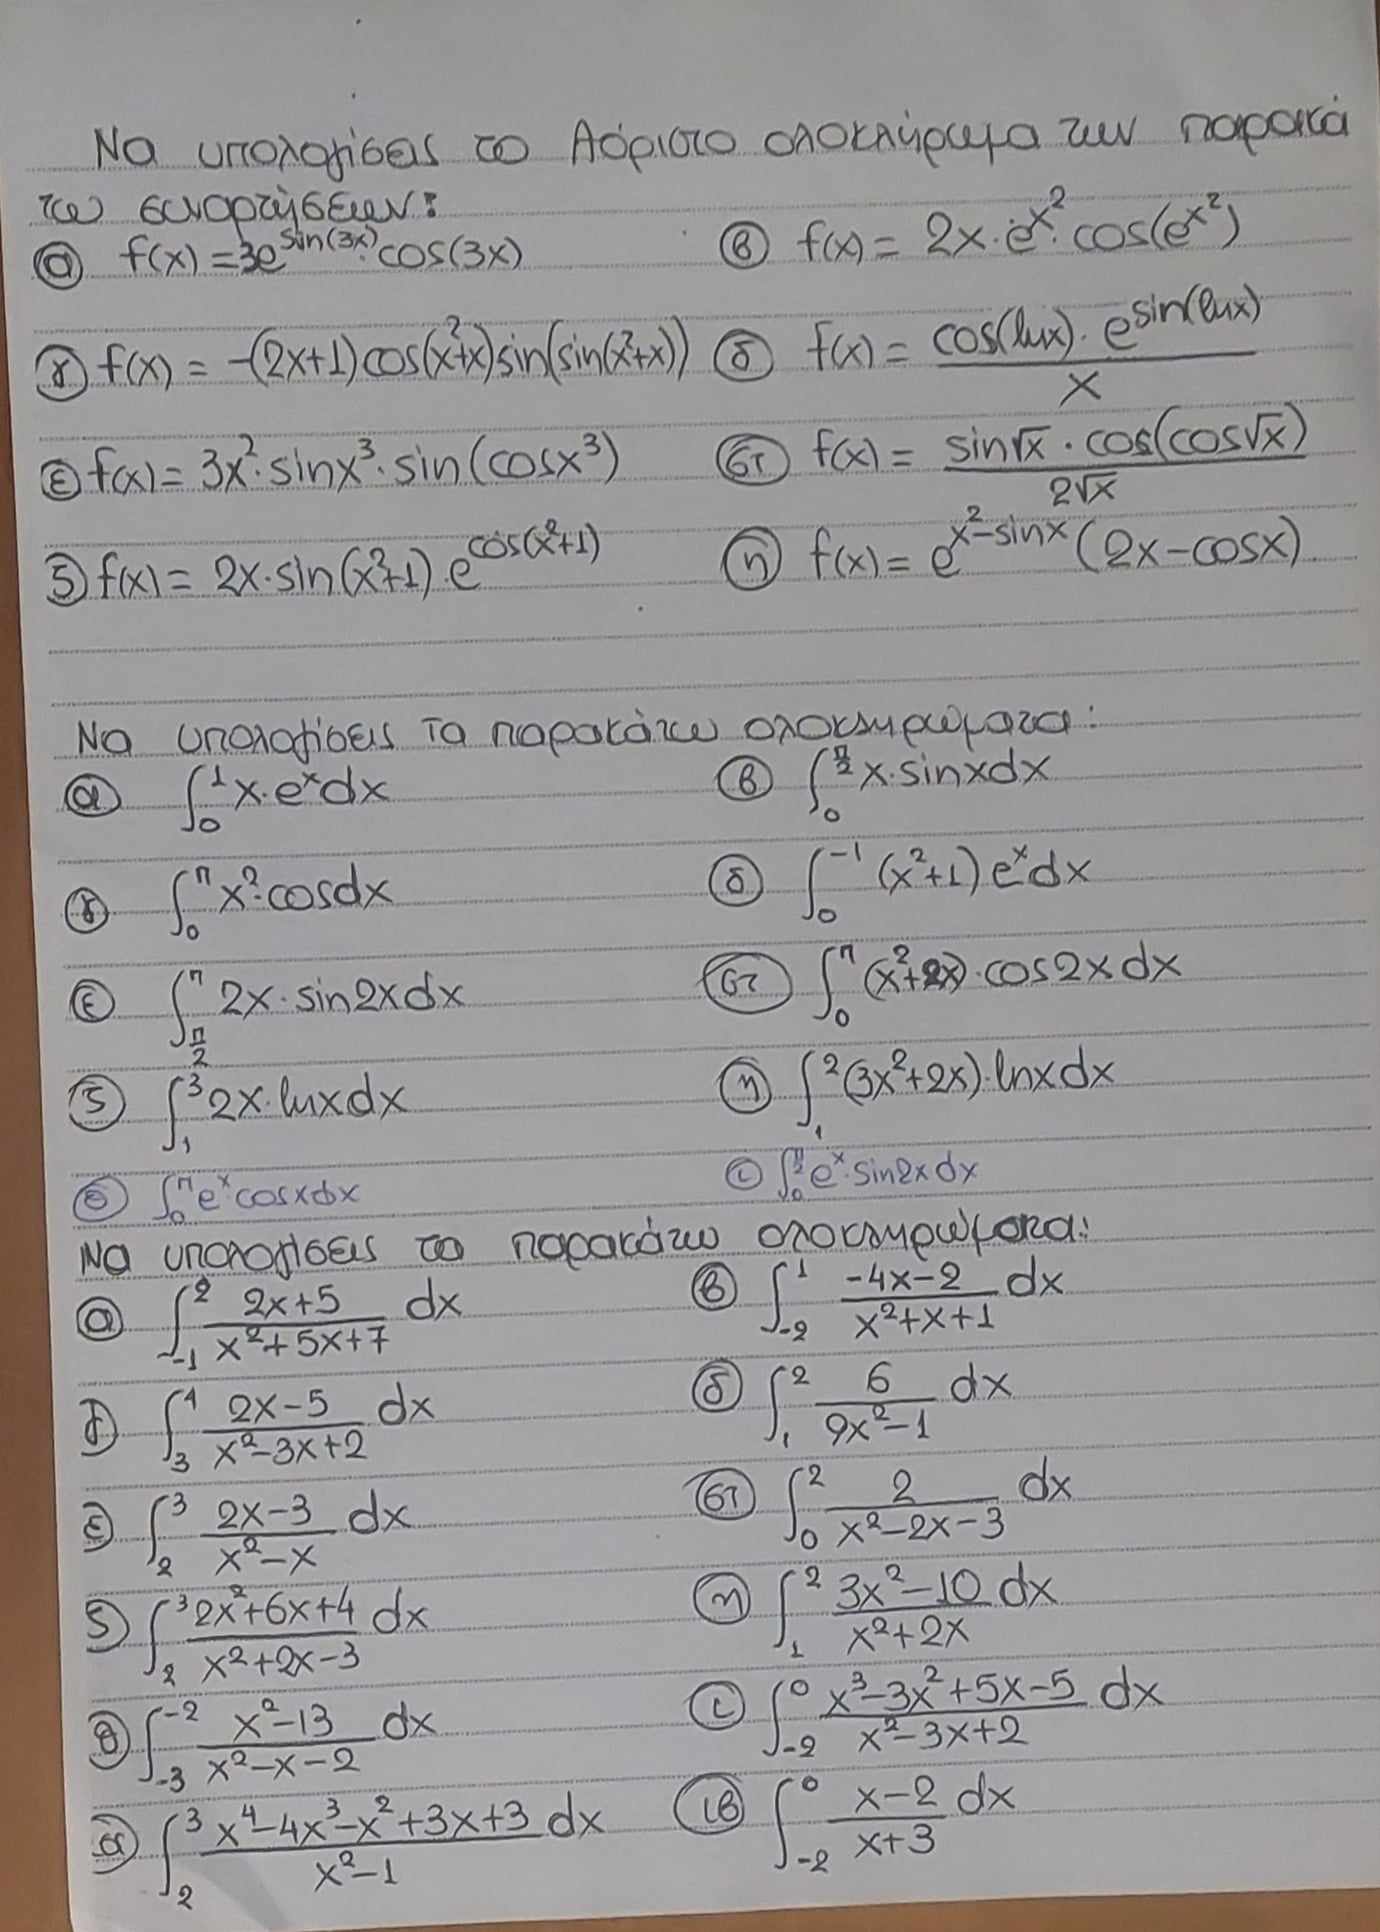 Να υπολογίσεις το Αόριστο ολοκλήρωμα των παρακά
τω συναρτήσεων:
ⓐ f(x) = 3e^{sin(3x)}·cos(3x) ⓑ f(x) = 2x·e^{x²}·cos(e^{x²})
ⓖ f(x) = -(2x+1)cos(x²+x)sin(sin(x²+x)) ⓓ f(x) = \frac{cos(lnx)·e^{sin(lnx)}}{x}
ε f(x) = 3x²·sinx³·sin(cosx³) στ f(x) = \frac{sin√x·cos(cos√x)}{2√x}
ζ f(x) = 2x·sin(x²+1)·e^{cos(x²+1)} η f(x) = e^{x²-sinx}(2x-cosx)
Να υπολογίσεις τα παρακάτω ολοκληρώματα:
α ∫_0^1 x·e^x dx β ∫_0^{π/2} x·sinxdx
γ ∫_0^π x²·cosdx δ ∫_0^{-1} (x²+1)e^x dx
ε ∫_{π/2}^π 2x·sin2xdx στ ∫_0^π (x²+2x)·cos2xdx
ζ ∫_1^3 2x·lnxdx η ∫_1^2 (3x²+2x)·lnxdx
θ ∫_0^π e^x·cosxdx ι ∫_0^{π/2} e^x·sin2xdx
Να υπολογίσεις τα παρακάτω ολοκληρώματα:
α ∫_{-1}^2 \frac{2x+5}{x²+5x+7} dx β ∫_{-2}^1 \frac{-4x-2}{x²+x+1} dx
γ ∫_3^4 \frac{2x-5}{x²-3x+2} dx δ ∫_1^2 \frac{6}{9x²-1} dx
ε ∫_2^3 \frac{2x-3}{x²-x} dx στ ∫_0^2 \frac{2}{x²-2x-3} dx
ζ ∫_2^3 \frac{2x²+6x+4}{x²+2x-3} dx η ∫_1^2 \frac{3x²-10}{x²+2x} dx
θ ∫_{-3}^{-2} \frac{x²-13}{x²-x-2} dx ι ∫_{-2}^0 \frac{x³-3x²+5x-5}{x²-3x+2} dx
ια ∫_2^3 \frac{x⁴-4x³-x²+3x+3}{x²-1} dx ιβ ∫_{-2}^0 \frac{x-2}{x+3} dx